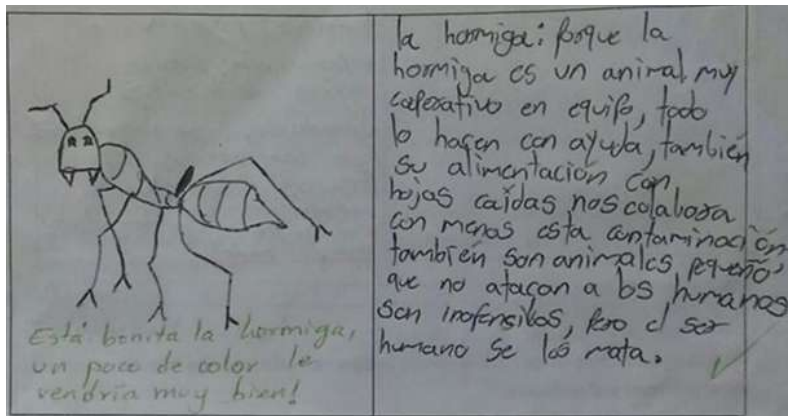 Está bonita la hormiga,
un poco de color le
vendría muy bien!
la hormiga: porque la
hormiga es un animal muy
coperativo en equipo, todo
lo hacen con ayuda, también
su alimentación con
hojas caídas nos colabora
con menos esta contaminación
también son animales pequeño
que no atacan a los humanos
son inofensivos, pero el ser
humano se los mata.